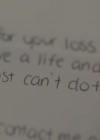 for your loss
ve a life and
ust can't do t
contact me